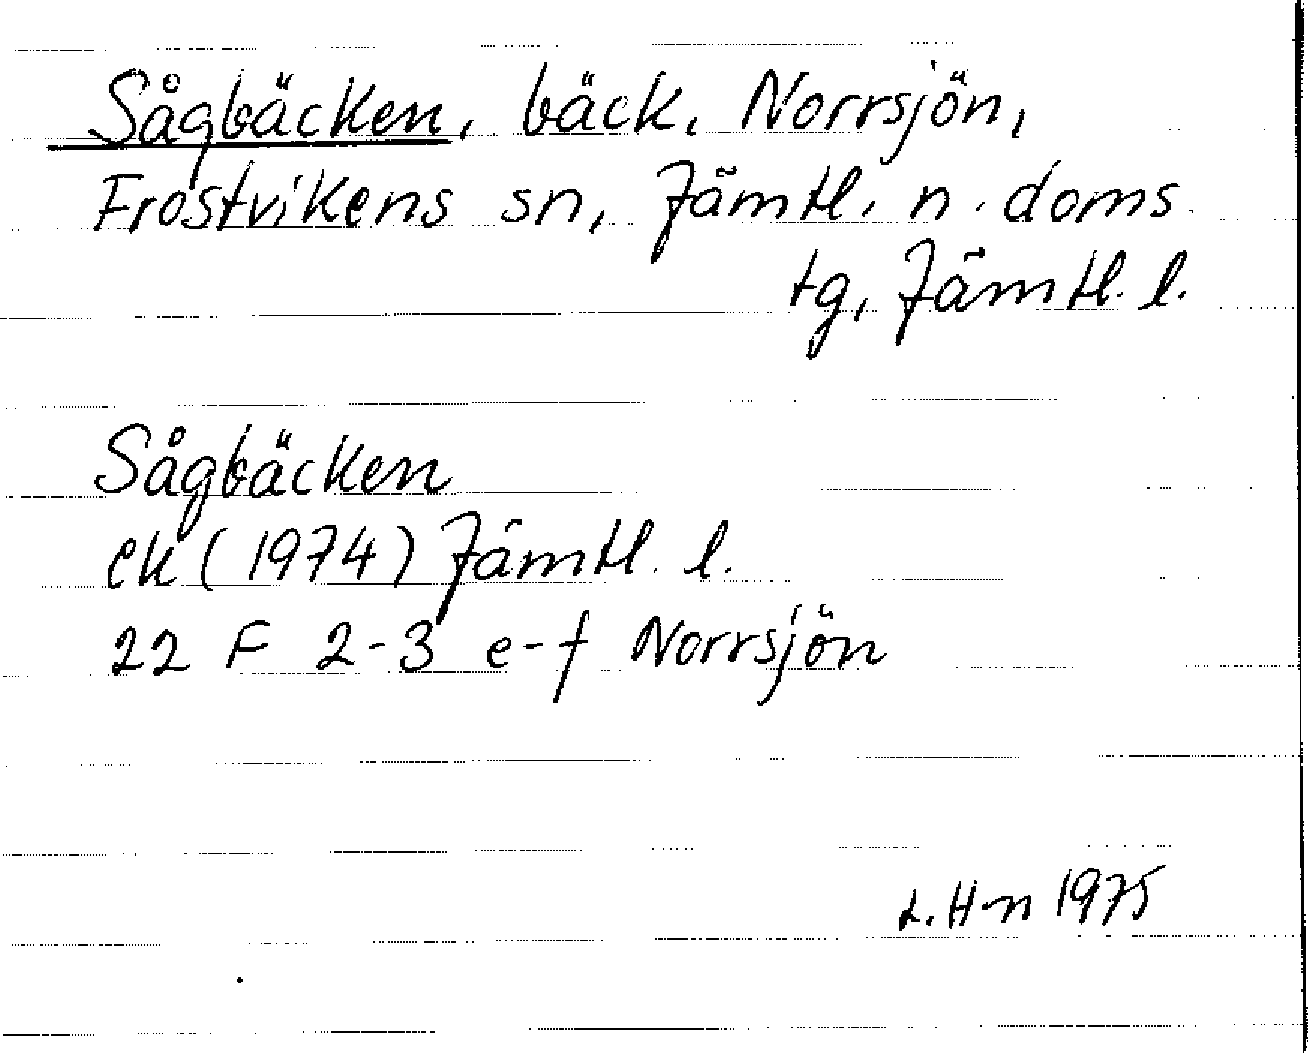 Sågbäcken, bäck, Norrsjön,
Frostvikens sn, Jämtl. n. doms
tg, Jämtl. l.
Sågbäcken
ek (1974) Jämtl. l.
22 F 2-3 e-f Norrsjön
L. H-n 1975